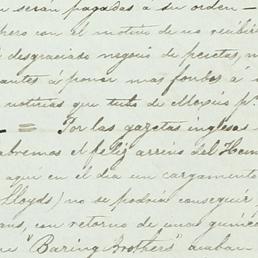 n serán pagadas a su orden —
pero con el motivo de no recibir
l desgraciado negocio de pesetas, n
antes á poner mas fondos á
noticias que tuve de Mexico p.r
— = Por las gazetas inglesas
abremos el feliz arrivo del Her
aqui en el dia un cargamento
Lloyds) no se podria conseguir
ans, con retorno de unas quince
"Baring Brothers" acaban